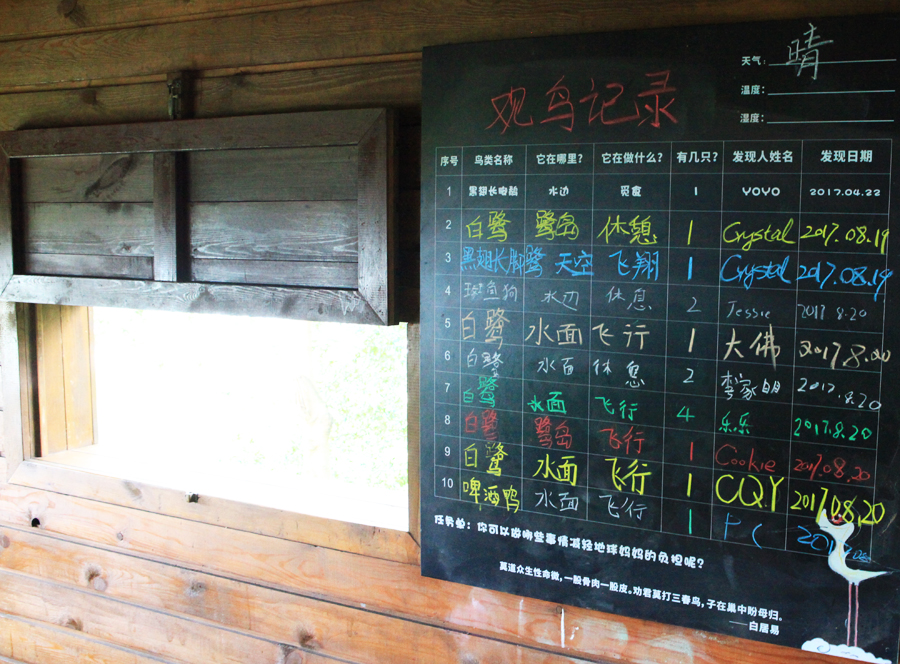 天气: 晴
温度:
湿度:
观鸟记录
序号 鸟类名称 它在哪里? 它在做什么? 有几只? 发现人姓名 发现日期
1 黑翅长脚鹬 水边 觅食 1 YOYO 2017.04.22
2 白鹭 鹭岛 休憩 1 Crystal 2017.08.19
3 黑翅长脚鹭 天空 飞翔 1 Crystal 2017.08.19
4 水边 休息 2 Jessie 2017 8.20
5 白鹭 水面 飞行 1 大佛 2017.8.20
6 白鹭 水面 休息 2 李家明 2017.8.20
7 白鹭 水面 飞行 4 乐乐 2017.8.20
8 白鹭 鹭岛 飞行 1 Cookie 2017.08.20
9 白鹭 水面 飞行 1 CQY 2017.08.20
10 啤酒鸭 水面 飞行 1
任务单: 你可以做哪些事情减轻地球妈妈的负担呢?
莫道众生性命微,一般骨肉一般皮。劝君莫打三春鸟,子在巢中盼母归。
——白居易